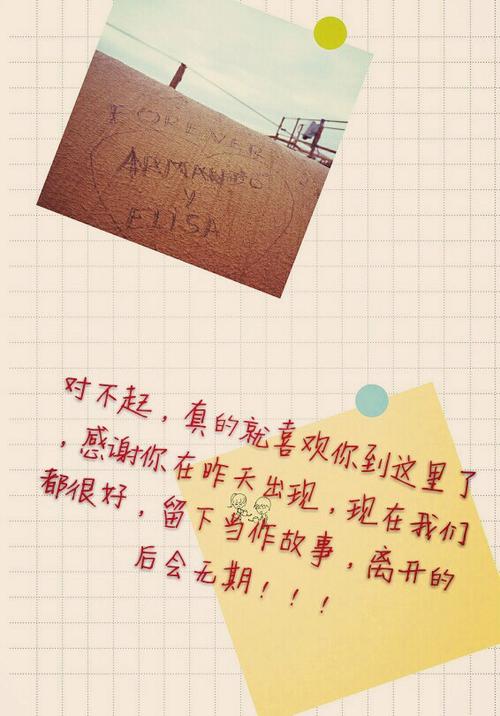 FOREVER
ARMANDO
Y
ELISA
对不起，真的就喜欢你到这里了
，感谢你在昨天出现，现在我们
都很好，留下当作故事，离开的
后会无期！！！